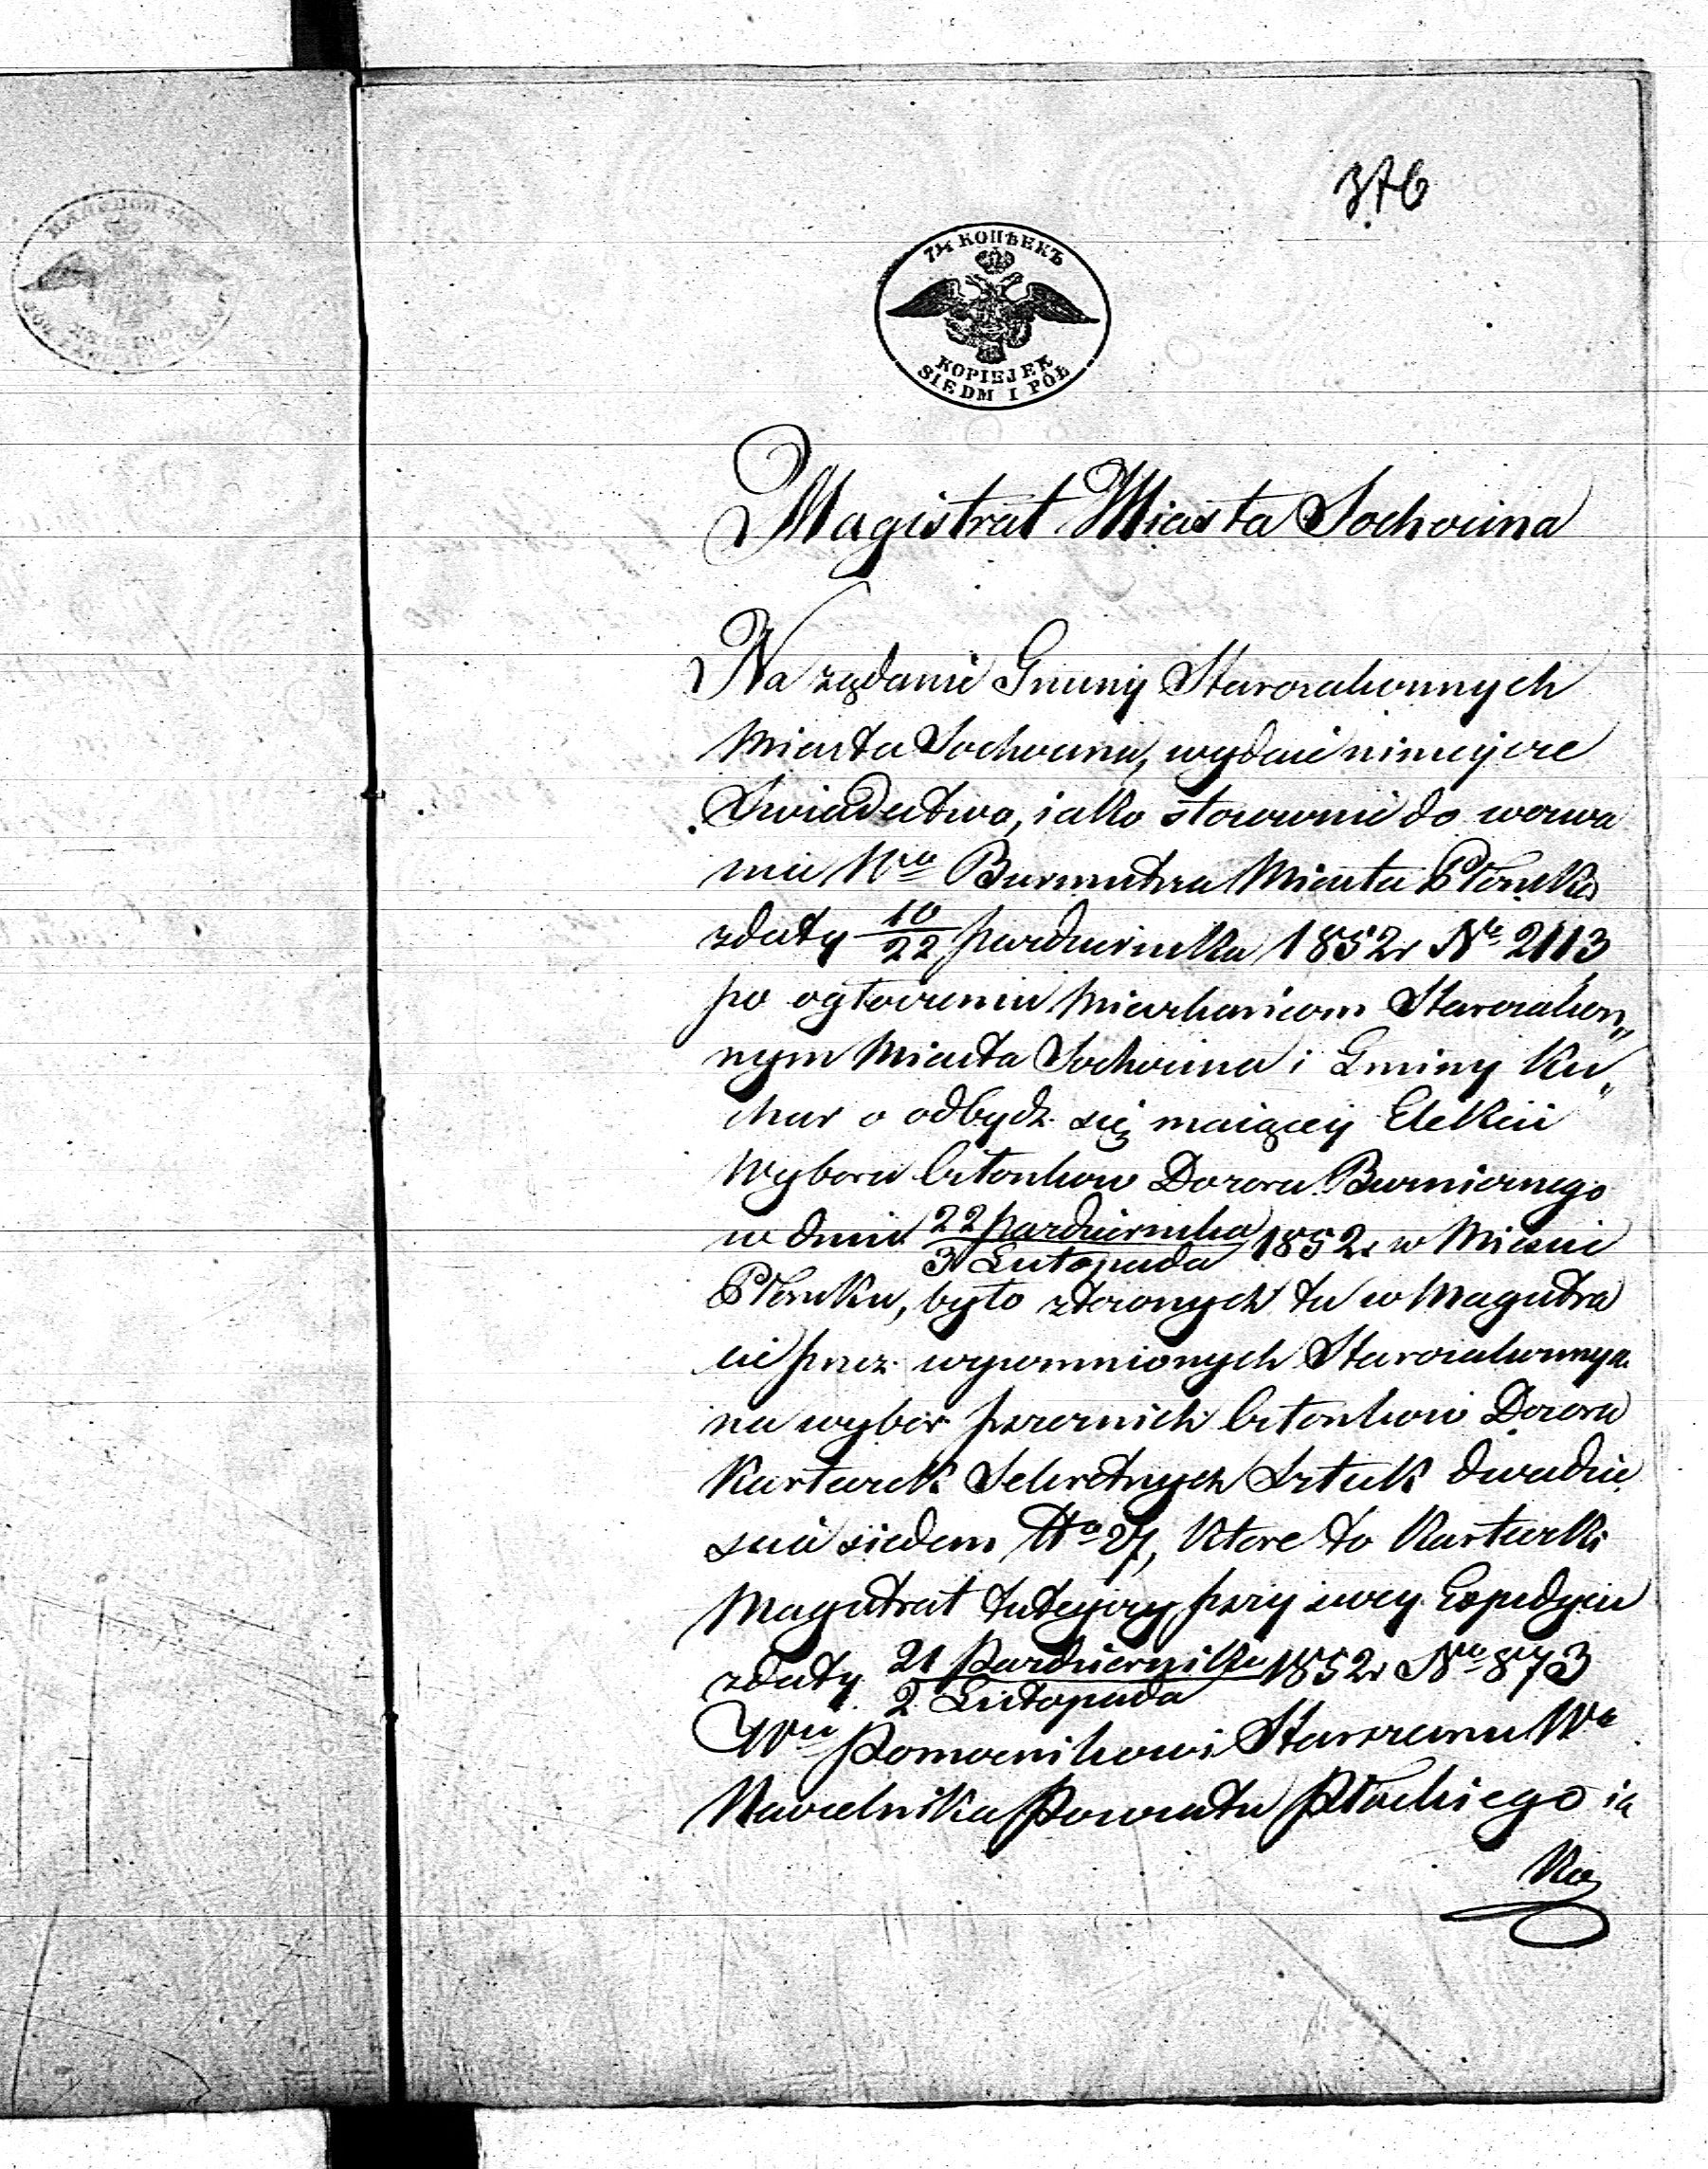 376
7½ КОПѢЕКЪ
KOPIEJEK
SIEDM I PÓŁ
Magistrat Miasta Sochocina
Na żądanie Gminy Starozakonnych
Miasta Sochocina, wydaie ninieysze
Swiadectwo, iako stosownie do wezwa
nia Wgo Burmistrza Miasta Płońska
z daty 10/22 Pazdziernika 1852r No 2113
po ogłoszeniu Mieszkańcom Starozakon„
nym Miasta Sochocina i Gminy Ku„
char o odbydz się maiącey Elekcii
Wyboru Członkow Dozoru Bożnicznego
w dniu 22 Pazdziernika / 3 Listopada 1852r w Miescie
Płonsku, było złożonych tu w Magistra
cie przez wspomnionych Starozakonnych
na wybor przeznich Członkow Dozoru
Karteczek Sekretnych Sztuk dwadzie
scia siedem No 27, ktore to Karteczki
Magistrat tuteyszy przy swey Expedycii
z daty 21 Pazdziernika / 2 Listopada 1852r No 873
Wu Pomocnikowi Starszemu Wo
Naczelnika Powiatu Płockiego ia
ko